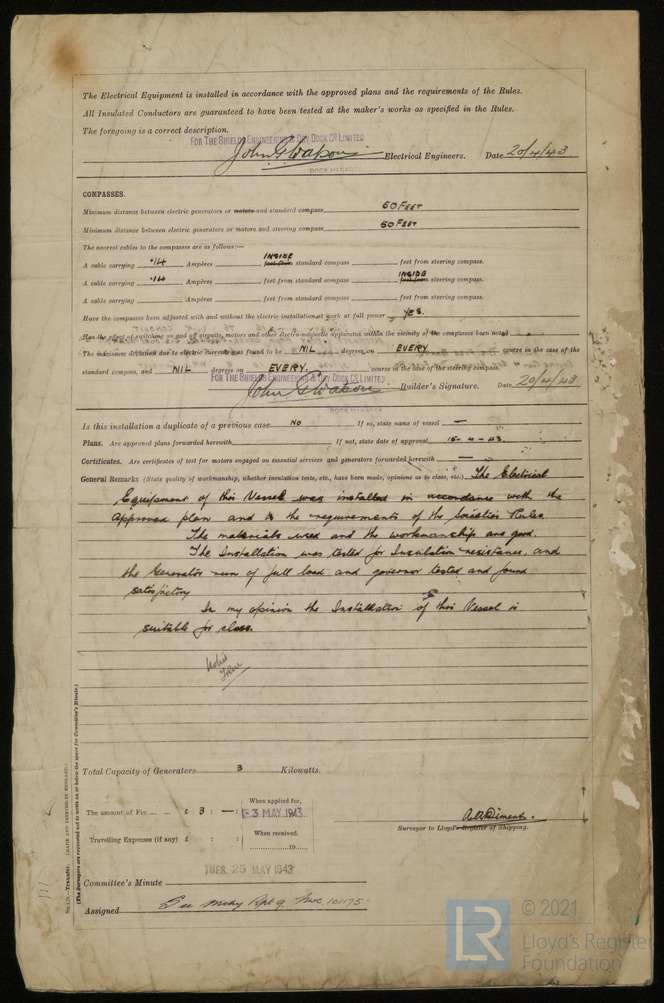 The Electrical Equipment is installed in accordance with the approved plans and the requirements of the Rules.
All Insulated Conductors are guaranteed to have been tested at the maker's works as specified in the Rules.
The foregoing is a correct description.
FOR THE SHIELDS ENGINEERING & DRY DOCK CO LIMITED
John G Watson Electrical Engineers. Date 20/4/43
DOCK MANAGER
COMPASSES.
Minimum distance between electric generators or motors and standard compass 60 FEET
Minimum distance between electric generators or motors and steering compass 60 FEET
The nearest cables to the compasses are as follows:—
A cable carrying .14 Ampères INSIDE feet from standard compass feet from steering compass.
A cable carrying .14 Ampères feet from standard compass INSIDE feet from steering compass.
A cable carrying Ampères feet from standard compass feet from steering compass.
Have the compasses been adjusted with and without the electric installation at work at full power YES.
Has the effect of switching on and off circuits, motors and other electro-magnetic apparatus within the vicinity of the compasses been noted
The maximum deviation due to electric currents was found to be NIL degrees on EVERY course in the case of the
standard compass, and NIL degrees on EVERY. course in the case of the steering compass.
FOR THE SHIELDS ENGINEERING & DRY DOCK CO LIMITED
John G Watson Builder's Signature. Date 20/4/43
DOCK MANAGER
Is this installation a duplicate of a previous case No If so, state name of vessel —
Plans. Are approved plans forwarded herewith If not, state date of approval 15-4-43.
Certificates. Are certificates of test for motors engaged on essential services and generators forwarded herewith —
General Remarks (State quality of workmanship, whether insulation tests, etc., have been made, opinions as to class, etc.) The Electrical
Equipment of this Vessel was installed in accordance with the
approved plan and to the requirements of the Societies Rules.
The materials used and the workmanship are good.
The Installation was tested for Insulation resistance, and
the Generator run of full load and governor tested and found
satisfactory
In my opinion the Installation of this Vessel is
suitable for class.
Noted
Total Capacity of Generators 3 Kilowatts.
The amount of Fee ... ... £ 3 : — : When applied for, 3 MAY 1943
Travelling Expenses (if any) £ : : When received, 19
Surveyor to Lloyd's Register of Shipping.
TUES. 25 MAY 1943
Committee's Minute
Assigned See Mchy Rpt 9 Nwc 101175
Transfer. (MADE AND PRINTED IN ENGLAND.)
(The Surveyors are requested not to write on or below the space for Committee's Minute.)
LR
© 2021
Lloyd's Register
Foundation